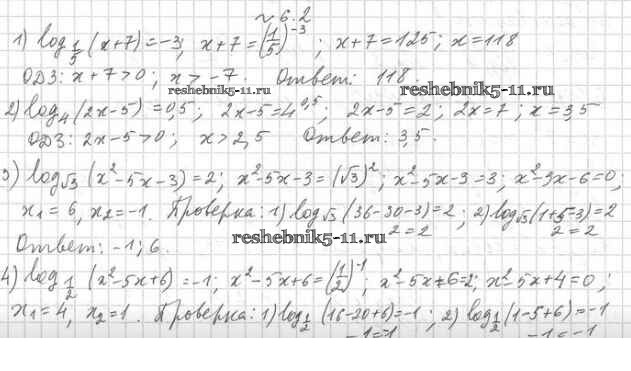 № 6.2
1) log_{1/5} (x+7) = -3; x+7 = (1/5)^{-3}; x+7=125; x=118
ОДЗ: x+7>0; x>-7. Ответ: 118.
reshebnik5-11.ru
2) log_4 (2x-5) = 0,5; 2x-5=4^{0,5}; 2x-5=2; 2x=7; x=3,5
ОДЗ: 2x-5>0; x>2,5 Ответ: 3,5.
3) log_{√3} (x²-5x-3)=2; x²-5x-3=(√3)²; x²-5x-3=3; x²-5x-6=0;
x₁=6, x₂=-1. Проверка: 1) log_{√3} (36-30-3)=2; 2) log_{√3} (1+5-3)=2
2=2 2=2
Ответ: -1; 6.
reshebnik5-11.ru
4) log_{1/2} (x²-5x+6) = -1; x²-5x+6 = (1/2)^{-1}; x²-5x+6=2; x²-5x+4=0;
x₁=4, x₂=1. Проверка: 1) log_{1/2} (16-20+6)=-1; 2) log_{1/2} (1-5+6)=-1
-1=-1 -1=-1